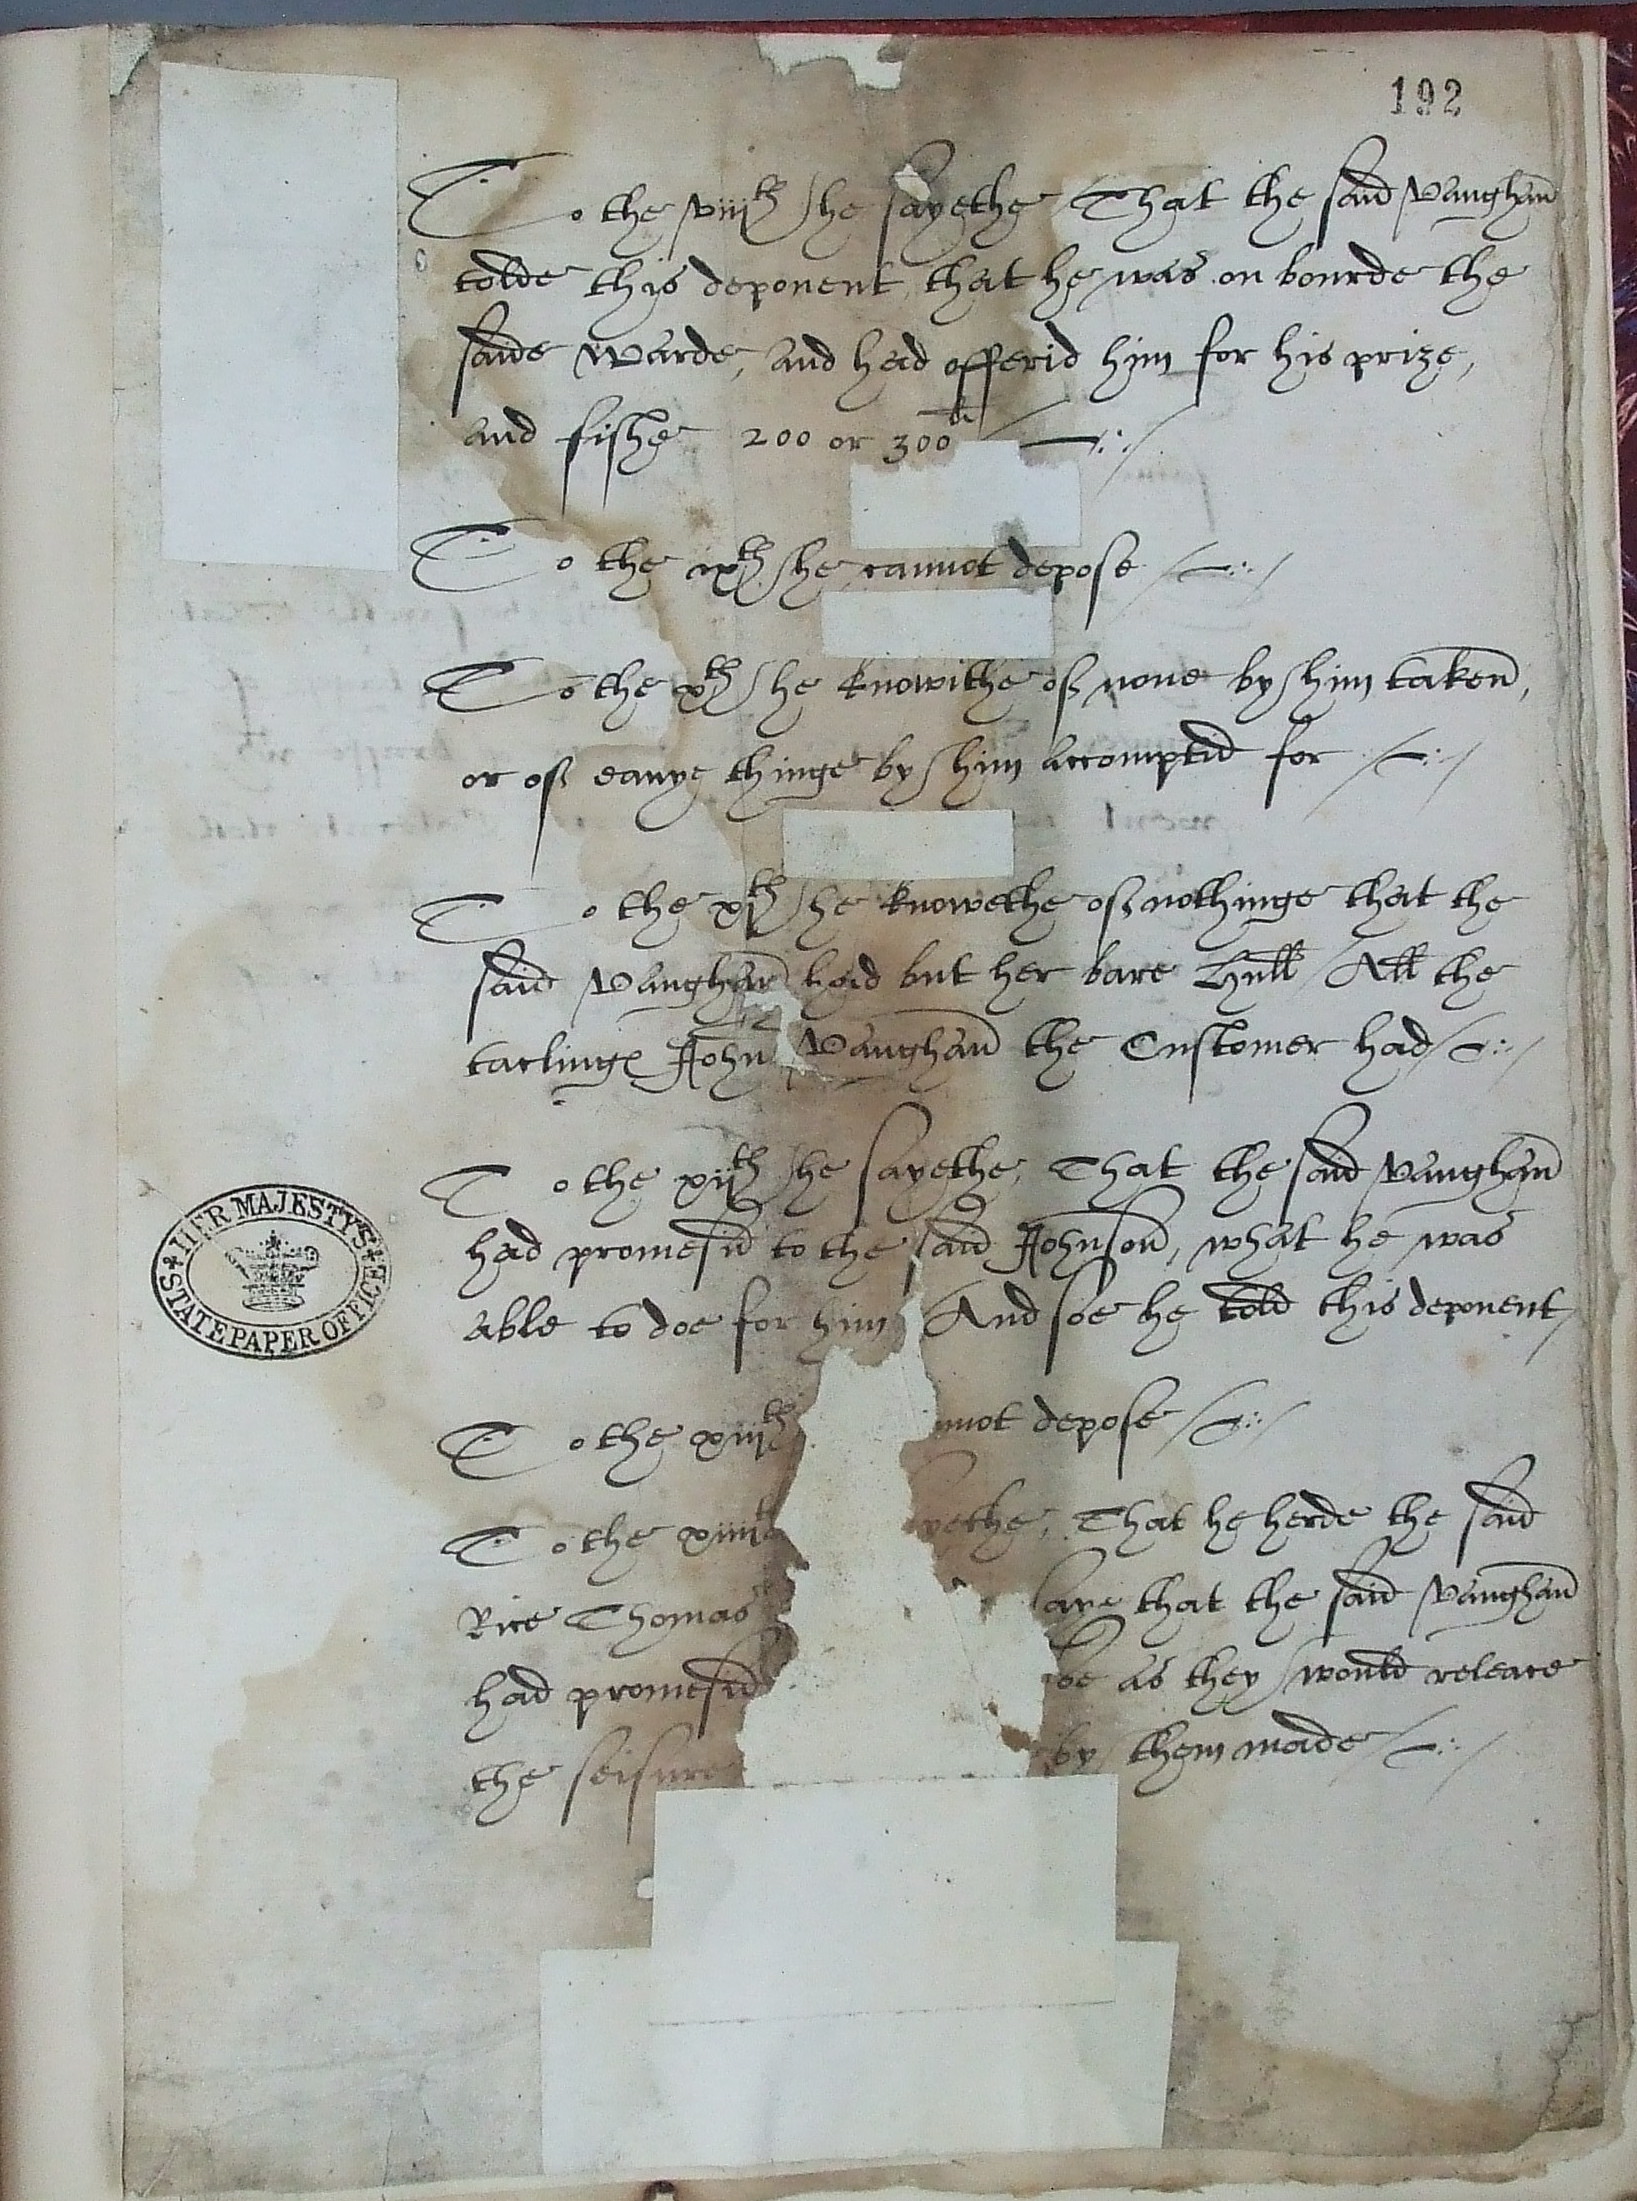 192
To the viijth he sayethe That the said Vaughan
tolde this deponent that he was on bourde the
saide Warde, and had offerid him for his prize,
and fishe 200 or 300li
To the ixth he cannot depose
To the xth he knowithe of none by him taken,
or of eanye thinge by him accomptid for
To the xjth he knowethe of nothinge that the
said Vaughan had but her bare Hull All the
taclinge John Vaughan the Customer had
To the xijth he sayethe, That the said Vaughan
had promesid to the said Johnson, what he was
able to doe for him And soe he told this deponent
To the xiijth nnot depose
To the xiiijth yethe, That he herde the said
Rice Thomas lare that the said Vaughan
had promesid be as they would release
the seisure by them made
HER MAJESTY'S STATE PAPER OFFICE